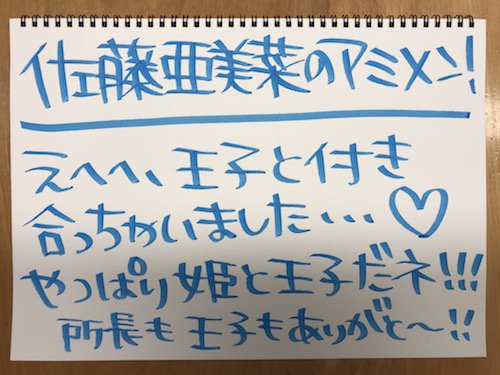 佐藤亜美菜のアミメン!
えへへ、王子と付き
合っちゃいました…♡
やっぱり姫と王子だネ!!!
所長も王子もありがと〜!!